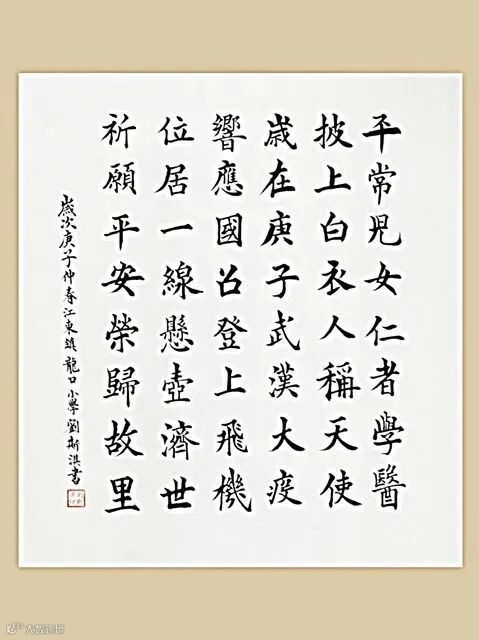 平常児女仁者學醫
披上白衣人稱天使
歲在庚子武漢大疫
響應國召登上飛機
位居一線懸壺濟世
祈願平安榮歸故里
歲次庚子仲春江東鎮龍口小學劉斯淇書